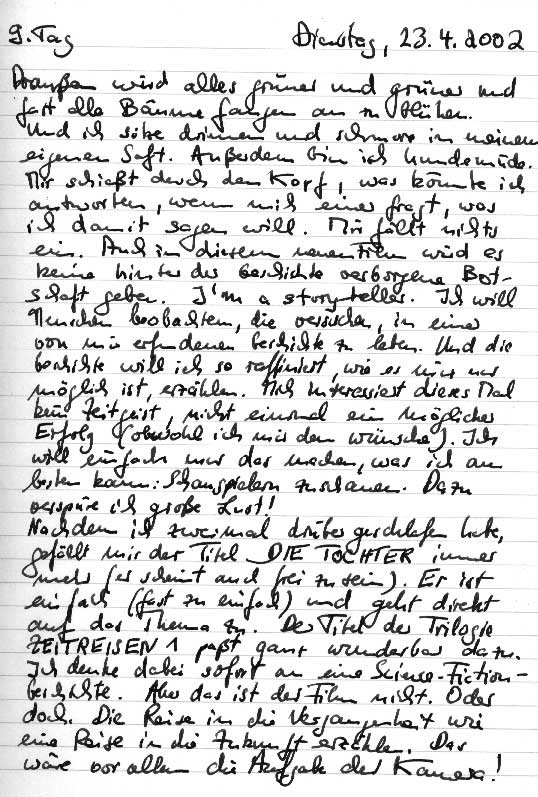 9. Tag Dienstag, 23.4.2002
Draußen wird alles grüner und grüner und
fast alle Bäume fangen an zu blühen.
Und ich sitze drinnen und schmore in meinem
eigenen Saft. Außerdem bin ich hundemüde.
Mir schießt durch den Kopf, was könnte ich
antworten, wenn mich einer fragt, was
ich damit sagen will. Mir fällt nichts
ein. Auch in diesem neuen Film wird es
keine hinter der Geschichte verborgene Bot-
schaft geben. I'm a storyteller. Ich will
Menschen beobachten, die versuchen, in einer
von mir erfundenen Geschichte zu leben. Und die
Geschichte will ich so raffiniert, wie es mir nur
möglich ist, erzählen. Mich interessiert dieses Mal
kein Zeitgeist, nicht einmal ein möglicher
Erfolg (obwohl ich mir den wünsche). Ich
will einfach nur das machen, was ich am
besten kann: Schauspielern zuschauen. Dazu
verspüre ich große Lust!
Nachdem ich zweimal drüber geschlafen habe,
gefällt mir der Titel DIE TOCHTER immer
mehr (er scheint auch frei zu sein). Er ist
einfach (fast zu einfach) und geht direkt
auf das Thema zu. Der Titel der Trilogie
ZEITREISEN 1 paßt ganz wunderbar dazu.
Ich denke dabei sofort an eine Science-Fiction-
Geschichte. Aber das ist der Film nicht. Oder
doch. Die Reise in die Vergangenheit wie
eine Reise in die Zukunft erzählen. Das
wäre vor allem die Aufgabe der Kamera!